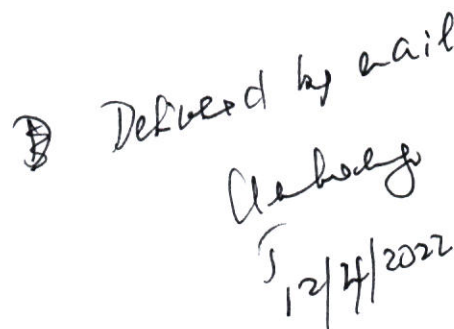 Delivered by email
J
12/4/2022